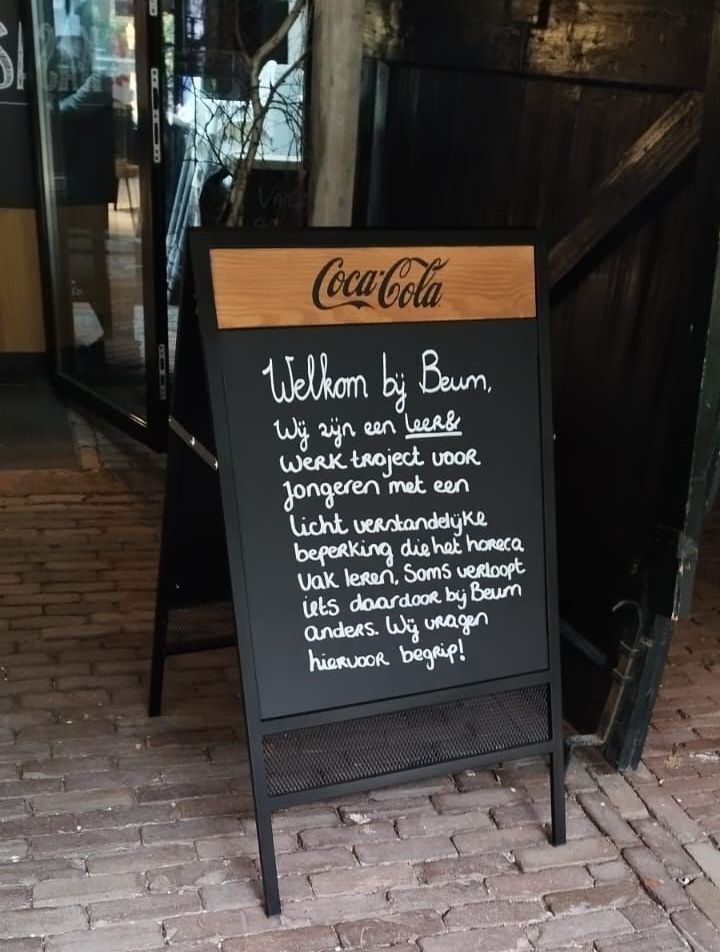 Coca-Cola
Welkom bij Beum,
Wij zijn een leer&
werk troject voor
Jongeren met een
licht verstandelijke
beperking die het horeca
vak leren. Soms verloopt
iets daardoor bij Beum
anders. Wij vragen
hiervoor begrip!